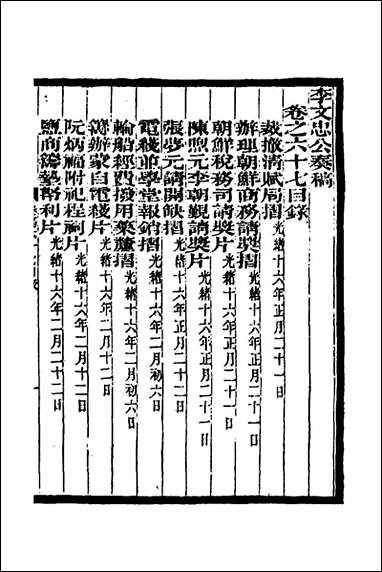 李文忠公奏稿
卷之六十七目錄
裁撤清賦局摺光緒十六年正月二十一日
辦理朝鮮商務請獎摺光緒十六年正月二十一日
朝鮮稅務司請獎片光緒十六年正月二十一日
陳煦元李朝覲請獎片光緒十六年正月二十一日
張夢元請開缺摺光緒十六年正月二十二日
電綫並學堂報銷摺光緒十六年二月初六日
輪船經費撥用藥釐摺光緒十六年二月初六日
籌辦蒙自電綫片光緒十六年二月二十二日
阮炳福附祀程祠片光緒十六年二月二十二日
鹽商鑄墊幣利片光緒十六年二月二十二日